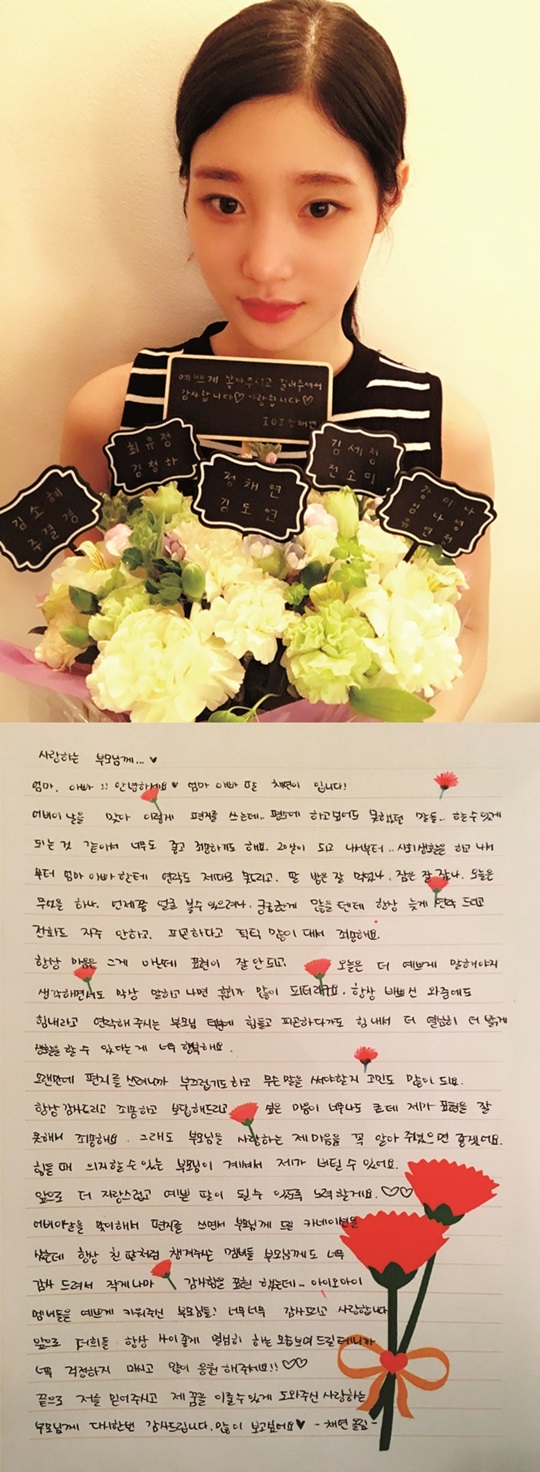 예쁘게 낳아주시고 길러주셔서
감사합니다♡ 사랑합니다♡
IOI 정채연
최유정
김청하
김세정
전소미
김소혜
주결경
정채연
김도연
강미나
임나영
유연정
사랑하는 부모님께...♥
엄마, 아빠 !! 안녕하세요♥ 엄마 아빠 딸 채연이 입니다!
어버이날을 맞아 이렇게 편지를 쓰는데.. 평소에 하고싶어도 못했던 말들.. 하는수있게
되는 것 같아서 너무도 좋고 죄송하기도 해요. 20살이 되고 나서부터.. 사회생활을 하고 나서
부터 엄마 아빠한테 연락도 제대로 못드리고. 딸 밥은 잘 먹었나, 잠은 잘 잤나. 오늘은
무엇을 하나. 언제쯤 얼굴 볼수 있으려나. 궁금한게 많을 텐데 항상 늦게 연락 드리고
전화도 자주 안하고. 피곤하다고 틱틱 많이 대서 죄송해요.
항상 마음은 그게 아닌데 표현이 잘 안되고. 오늘은 더 예쁘게 말해야지
생각하면서도 막상 말하고 나면 후회가 많이 되더라구요. 항상 바쁘신 와중에도
힘내라고 연락해 주시는 부모님 덕분에 힘들고 피곤하다가도 힘 내서 더 열심히 더 밝게
생활을 할 수 있다는 게 너무 행복해요.
오랜만에 편지를 쓰려니까 부끄럽기도하고 무슨 말을 써야할지 고민도 많이 되요.
항상 감사드리고 죄송하고 보답해드리고 싶은 마음이 너무나도 큰데 제가 표현을 잘
못해서 죄송해요. 그래도 부모님을 사랑하는 제 마음을 꼭 알아 주셨으면 좋겠어요.
힘들 때 의지할수 있는 부모님이 계셔서 제가 버틸 수 있어요.
앞으로 더 자랑스럽고 예쁜 딸이 될 수 있도록 노력 할게요.♡♡
어버이날을 맞이해서 편지를 쓰면서 부모님께 드릴 카네이션을
샀는데 항상 친 딸처럼 챙겨주시는 멤버들 부모님께도 너무
감사 드려서 작게나마 감사함을 표현 했는데.. 아이오아이
멤버들을 예쁘게 키워주신 부모님들! 너무너무 감사드리고 사랑합니다
앞으로 저희들 항상 사이좋게 열심히 하는 모습보여 드릴테니까
너무 걱정하지 마시고 많이 응원 해주세요!! ♡♡
끝으로 저를 믿어주시고 제 꿈을 이룰수있게 도와주신 사랑하는
부모님께 다시한번 감사드립니다. 많이 보고싶어요♥ -채연 올림-